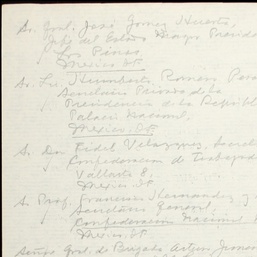 Sr. Gral. José Gomez Huerta,
Jefe del Estado Mayor Presiden
Los Pinos
Mexico DF
Sr. Lic. Humberto Romero Pere
Secretario Privado de la
Presidencia de la Repúbli
Palacio Nacional,
Mexico, DF
Sr. Don Fidel Velazquez, Secreta
Confederacion de Trabajado
Vallarta 8,
Mexico DF
Sr. Prof. Francisco Hernandez y
Secretario General,
Confederacion Nacional
Mexico DF
Señor Gral. de Brigada